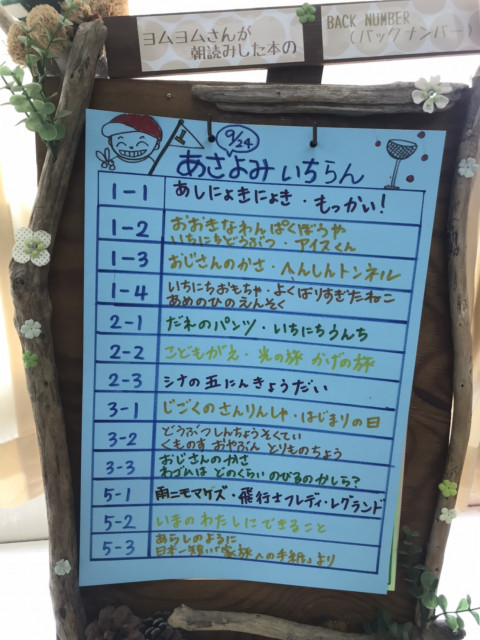 ヨムヨムさんが
朝読みした本の
BACK NUMBER
(バックナンバー)
9/24
あさよみ いちらん
1-1 あしにょきにょき・もっかい!
1-2 おおきなわんぱくぼうや
いちにちどうぶつ・アイスくん
1-3 おじさんのかさ・へんしんトンネル
1-4 いちにちおもちゃ・よくばりすぎたねこ
あめのひのえんそく
2-1 だれのパンツ・いちにちうんち
2-2 こどもがえ・光の旅 かげの旅
2-3 シナの五にんきょうだい
3-1 じごくのさんりんしゃ・はじまりの日
3-2 どうぶつしんちょうそくてい
くものすおやぶん とりものちょう
3-3 おじさんのかさ
わゴムは どのくらい のびるのかしら?
5-1 雨ニモマケズ・飛行士フレディ・レグランド
5-2 いまのわたしにできること
5-3 あらしのよるに
日本一短い「家族への手紙」より